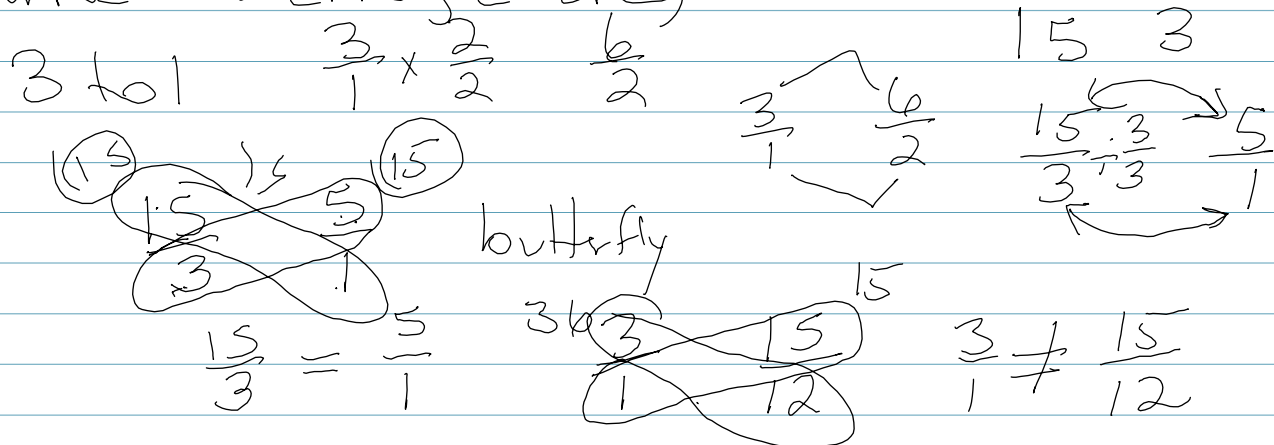 3 to 1 3/1 x 2/2 6/2
3/1 6/2
15 3
15/3 ÷ 3/3 5/1
15 15 15
15/3 5/1
butterfly
15/3 = 5/1
36 15
3/1 15/12
3/1 ≠ 15/12